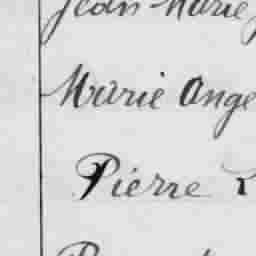 Jean Marie
Marie Ange
Pierre